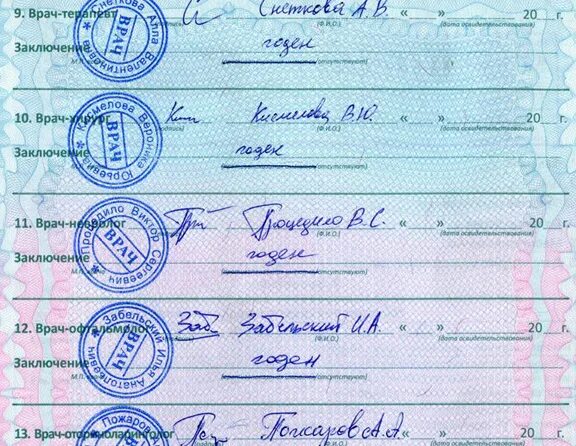 9. Врач-терапевт Снеткова А.В. « » 20 г.
(Ф.И.О.) (дата освидетельствования)
Заключение годен
М.П. отсутствуют)
ВРАЧ Снеткова Алла Валентиновна
10. Врач-хирург Кисмелова В.Ю. « » 20 г.
(Ф.И.О.) (дата освидетельствования)
Заключение годен
отсутствуют)
ВРАЧ Вероника Юрьевна
11. Врач-невролог Процедило В.С. « » 20 г.
(Ф.И.О.) (дата освидетельствования)
Заключение годен
отсутствуют)
ВРАЧ Процедило Виктор Сергеевич
12. Врач-офтальмолог Заб Забельский И.А. « » 20 г.
(Ф.И.О.) (дата освидетельствования)
Заключение годен
отсутствуют)
ВРАЧ Забельский Илья Анатольевич
13. Врач-оториноларинголог Пожаров А.А. « » 20 г.
(Ф.И.О.) (дата освидетельствования)